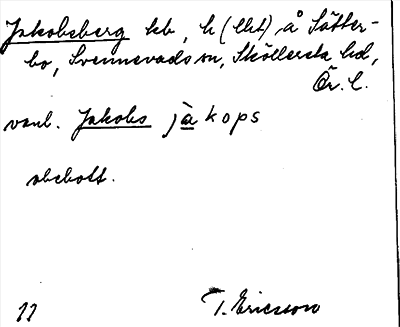 Jakobsberg hb, h (lht) å Sätter-
bo, Svennevads sn, Sköllersta hd,
Ör. l.
vanl. Jakobs jàkops
obebott.
T. Ericsson